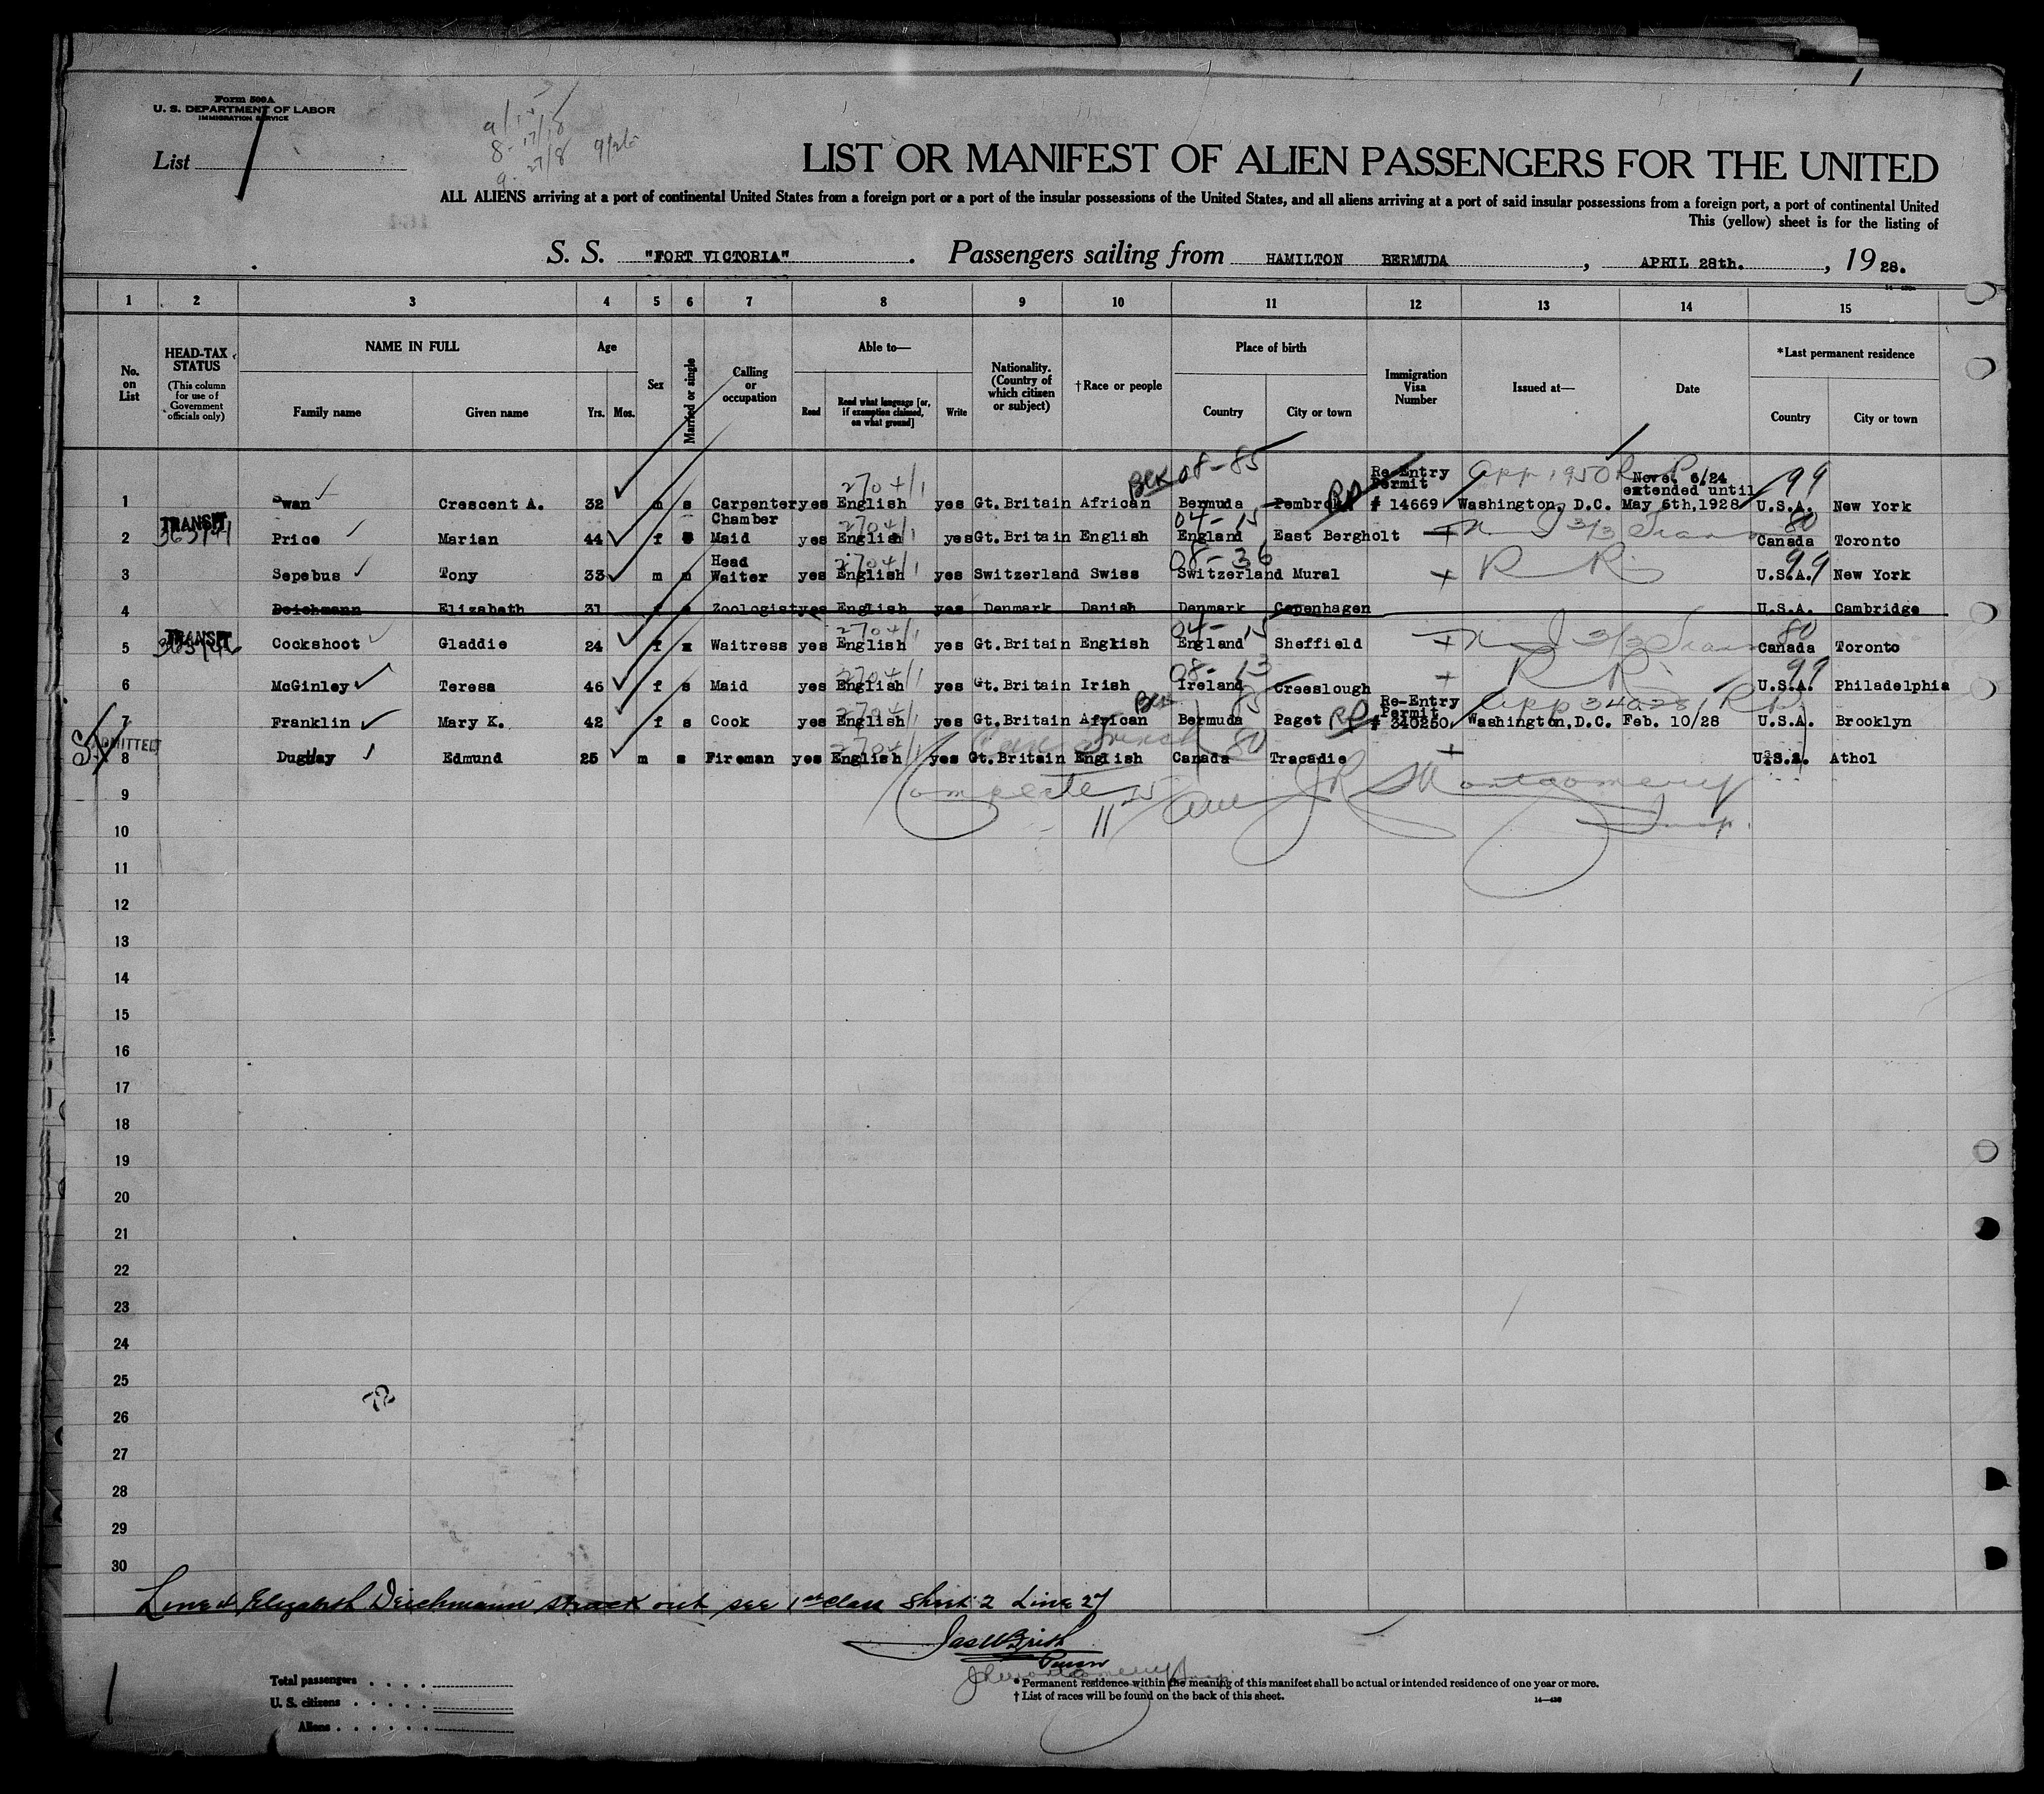 Form 500A
U. S. DEPARTMENT OF LABOR
IMMIGRATION SERVICE
List
9/26
LIST OR MANIFEST OF ALIEN PASSENGERS FOR THE UNITED
ALL ALIENS arriving at a port of continental United States from a foreign port or a port of the insular possessions of the United States, and all aliens arriving at a port of said insular possessions from a foreign port, a port of continental United
This (yellow) sheet is for the listing of
S. S. "FORT VICTORIA" . Passengers sailing from HAMILTON BERMUDA , APRIL 28th. , 19 28.
1 2 3 4 5 6 7 8 9 10 11 12 13 14 15
No. on List
HEAD-TAX STATUS (This column for use of Government officials only)
NAME IN FULL
Family name Given name
Age
Yrs. Mos.
Sex
Married or single
Calling or occupation
Able to—
Read Read what language [or, if exemption claimed, on what ground] Write
Nationality. (Country of which citizen or subject)
†Race or people
Place of birth
Country City or town
Immigration Visa Number
Issued at—
Date
*Last permanent residence
Country City or town
BLK 08-85
2704/1
Re-Entry Permit app 1950 Nove. 6/24 extended until 99
1 Swan Crescent A. 32 m s Carpenter yes English yes Gt.Britain African Bermuda Pembroke RP # 14669 Washington, D.C. May 6th,1928 U.S.A. New York
TRANSIT Chamber 2704/1 04-15 80
2 Price Marian 44 f Maid yes English yes Gt.Britain English England East Bergholt Canada Toronto
Head 2704/1 08-36 99
3 Sepebus Tony 33 m m Waiter yes English yes Switzerland Swiss Switzerland Mural R R U.S.A. New York
4 Deichmann Elizabeth 31 f s Zoologist yes English yes Denmark Danish Denmark Copenhagen U.S.A. Cambridge
TRANSIT 2704/1 04-15 80
5 Cockshoot Gladdie 24 f Waitress yes English yes Gt.Britain English England Sheffield Canada Toronto
2704/1 08-13 99
6 McGinley Teresa 46 f s Maid yes English yes Gt.Britain Irish Ireland Creeslough R R U.S.A. Philadelphia
2704/1 Blk 85 Re-Entry Permit app 34028 RP
7 Franklin Mary K. 42 f s Cook yes English yes Gt.Britain African Bermuda Paget RP # 340250 Washington,D.C. Feb. 10/28 U.S.A. Brooklyn
ADMITTED 2704/1 French 80
8 Duguay Edmund 25 m s Fireman yes English yes Gt.Britain English Canada Tracadie U.S.A. Athol
9 Complete JR Montgomery
10 Insp.
11
12
13
14
15
16
17
18
19
20
21
22
23
24
25
72
26
27
28
29
30
Line 4 Elizabeth Deichmann struck out see 1st class Sheet 2 Line 27
Purser
Total passengers
U. S. citizens
Aliens
* Permanent residence within the meaning of this manifest shall be actual or intended residence of one year or more.
† List of races will be found on the back of this sheet.
14—430